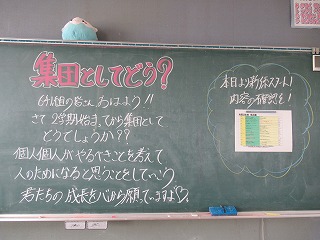 集団としてどう?
6年1組の皆さん おはよう!!
さて 2学期始まってから集団として
どうでしょうか??
個人個人がやるべきことを考えて
人のためになると思うことをしていこう
君たちの成長を心から願っていますよ♡。
本日より新体スタート!
内容の確認を!